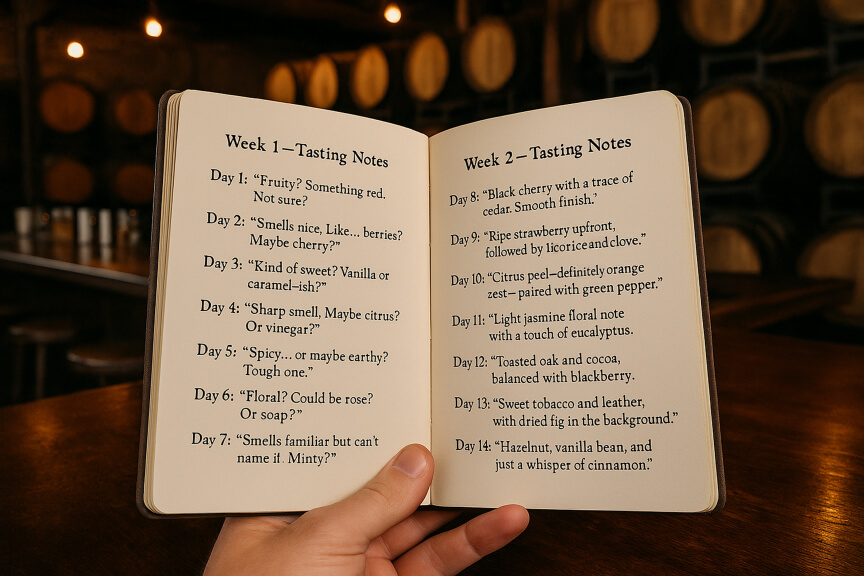 Week 1—Tasting Notes
Day 1: “Fruity? Something red.
Not sure?
Day 2: “Smells nice, Like... berries?
Maybe cherry?”
Day 3: “Kind of sweet? Vanilla or
caramel–ish?”
Day 4: “Sharp smell, Maybe citrus?
Or vinegar?”
Day 5: “Spicy... or maybe earthy?
Tough one.”
Day 6: “Floral? Could be rose?
Or soap?”
Day 7: “Smells familiar but can't
name it. Minty?”
Week 2—Tasting Notes
Day 8: “Black cherry with a trace of
cedar. Smooth finish.’
Day 9: “Ripe strawberry upfront,
followed by licorice and clove.”
Day 10: “Citrus peel—definitely orange
zest— paired with green pepper.”
Day 11: “Light jasmine floral note
with a touch of eucalyptus.
Day 12: “Toasted oak and cocoa,
balanced with blackberry.
Day 13: “Sweet tobacco and leather,
with dried fig in the background.”
Day 14: “Hazelnut, vanilla bean, and
just a whisper of cinnamon.”